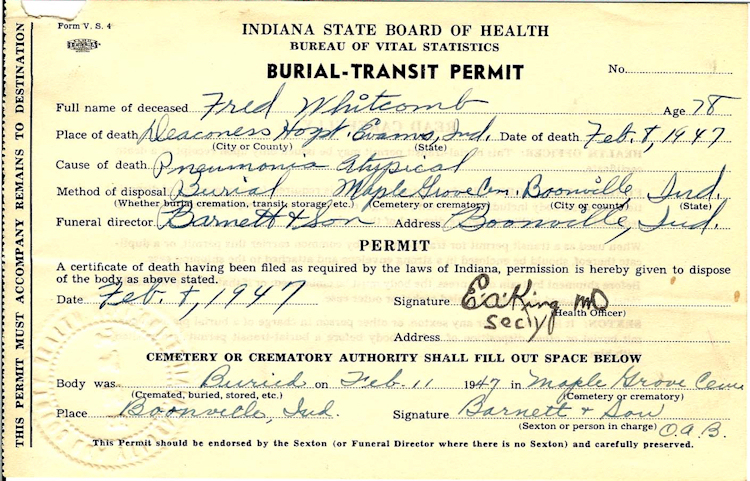 Form V. S. 4
INDIANA STATE BOARD OF HEALTH
BUREAU OF VITAL STATISTICS
BURIAL-TRANSIT PERMIT
No.
Full name of deceased Fred Whitcomb Age 78
Place of death Deaconess Hospt. Evans, Ind. Date of death Feb. 1947
(City or County) (State)
Cause of death Pneumonia Atypical
Method of disposal Burial Maple Grove Cem. Boonville, Ind.
(Whether burial cremation, transit, storage, etc.) (Cemetery or crematory) (City or county) (State)
Funeral director Barnett & Son Address Boonville, Ind.
PERMIT
A certificate of death having been filed as required by the laws of Indiana, permission is hereby given to dispose
of the body as above stated.
Date Feb. 1947 Signature E.A. King MD
(Health Officer)
Sec'y
Address
CEMETERY OR CREMATORY AUTHORITY SHALL FILL OUT SPACE BELOW
Body was Buried on Feb. 11 1947 in Maple Grove Cem
(Cremated, buried, stored, etc.) (Cemetery or crematory)
Place Boonville, Ind. Signature Barnett & Son
(Sexton or person in charge) O.A.B.
This Permit should be endorsed by the Sexton (or Funeral Director where there is no Sexton) and carefully preserved.
THIS PERMIT MUST ACCOMPANY REMAINS TO DESTINATION